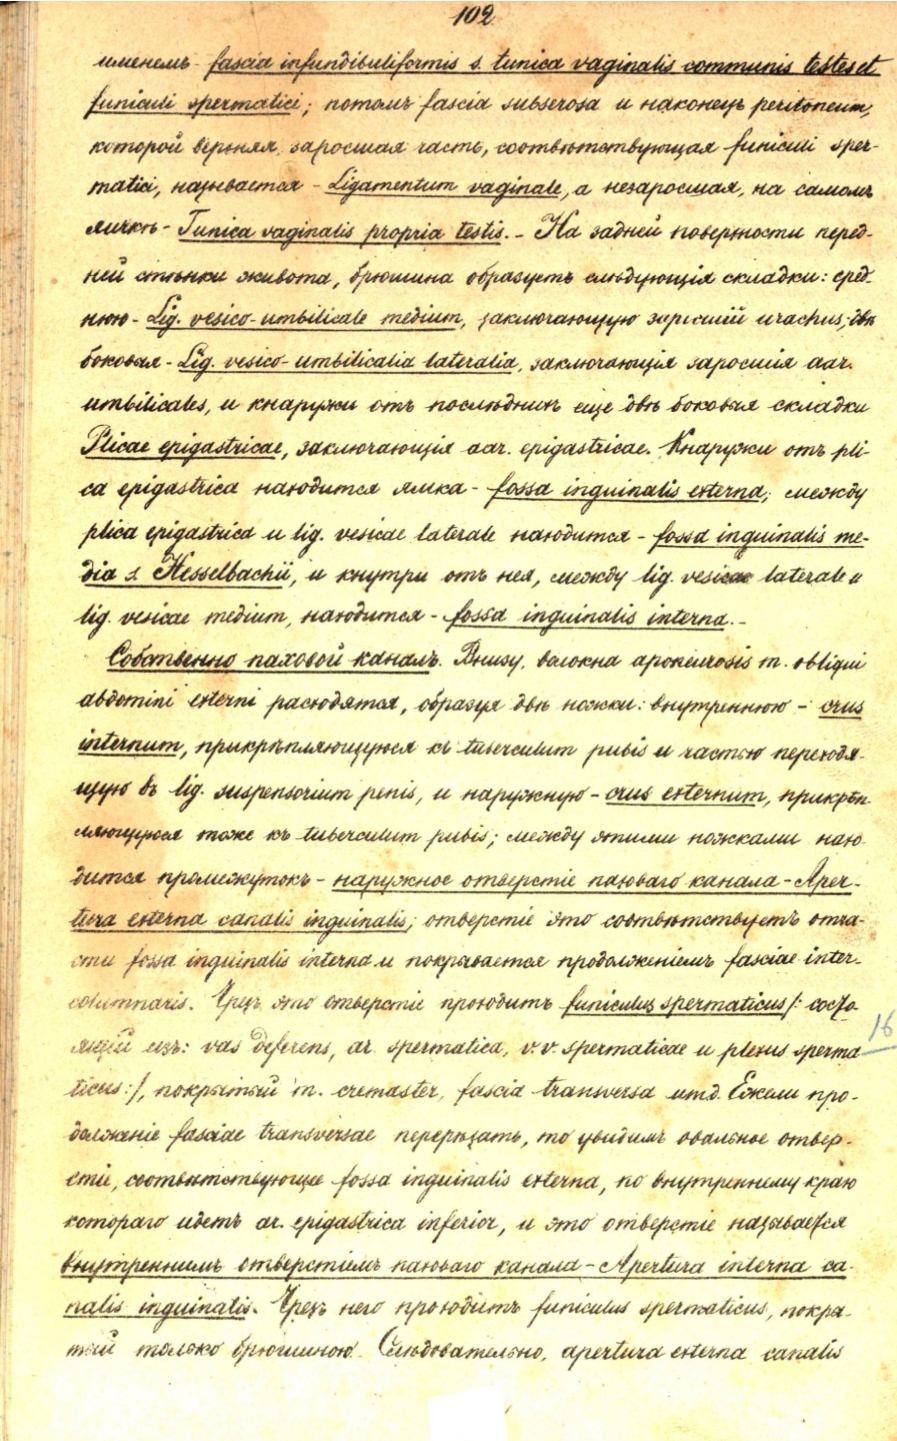 102
именемъ fascia infundibuliformis s. tunica vaginalis communis testes et
funiculi spermatici; потомъ fascia subserosa и наконецъ peritoneum,
которой верхняя, заросшая часть, соотвѣтствующая funiculi sper-
matici, называется - Ligamentum vaginale, а незаросшая, на самомъ
яичкѣ - Tunica vaginalis propria testis. - На задней поверхности перед-
ней стѣнки живота, брюшина образуетъ слѣдующія складки: сред-
нюю - Lig. vesico-umbilicale medium, заключающую заросшій urachus; двѣ
боковыя - Lig. vesico-umbilicalia lateralia, заключающія заросшія aar.
umbilicales, и кнаружи отъ послѣднихъ еще двѣ боковыя складки
Plicae epigastricae, заключающія aar. epigastricae. Кнаружи отъ pli-
ca epigastrica находится ямка - fossa inguinalis externa; между
plica epigastrica и lig. vesicae laterale находится - fossa inguinalis me-
dia s. Hesselbachii, и кнутри отъ нея, между lig. vesicae laterale и
lig. vesicae medium, находится - fossa inguinalis interna. -
Собственно паховой каналъ. Внизу, волокна aponeurosis m. obliqui
abdomini externi расходятся, образуя двѣ ножки: внутреннюю - crus
internum, прикрѣпляющуюся къ tuberculum pubis и частью переходя-
щую въ lig. suspensorium penis, и наружную - crus externum, прикрѣп-
ляющуюся тоже къ tuberculum pubis; между этими ножками нахо-
дится промежутокъ - наружное отверстіе паховаго канала - Aper-
tura externa canalis inguinalis; отверстіе это соотвѣтствуетъ отча-
сти fossa inguinalis interna и покрывается продолженіемъ fasciae inter-
columnaris. Чрезъ это отверстіе проходитъ funiculus spermaticus /: состо-
ящій изъ: vas deferens, ar. spermatica, v.v. spermaticae и plexus sperma-
16
ticus :/, покрытый m. cremaster, fascia transversa итд. Ежели про-
долженіе fasciae transversae перерѣзать, то увидимъ овальное отвер-
стіе, соотвѣтствующее fossa inguinalis externa, по внутреннему краю
котораго идетъ ar. epigastrica inferior, и это отверстіе называется
внутреннимъ отверстіемъ паховаго канала - Apertura interna ca-
nalis inguinalis. Чрезъ него проходитъ funiculus spermaticus, покры-
тый только брюшиною. Слѣдовательно, apertura externa canalis